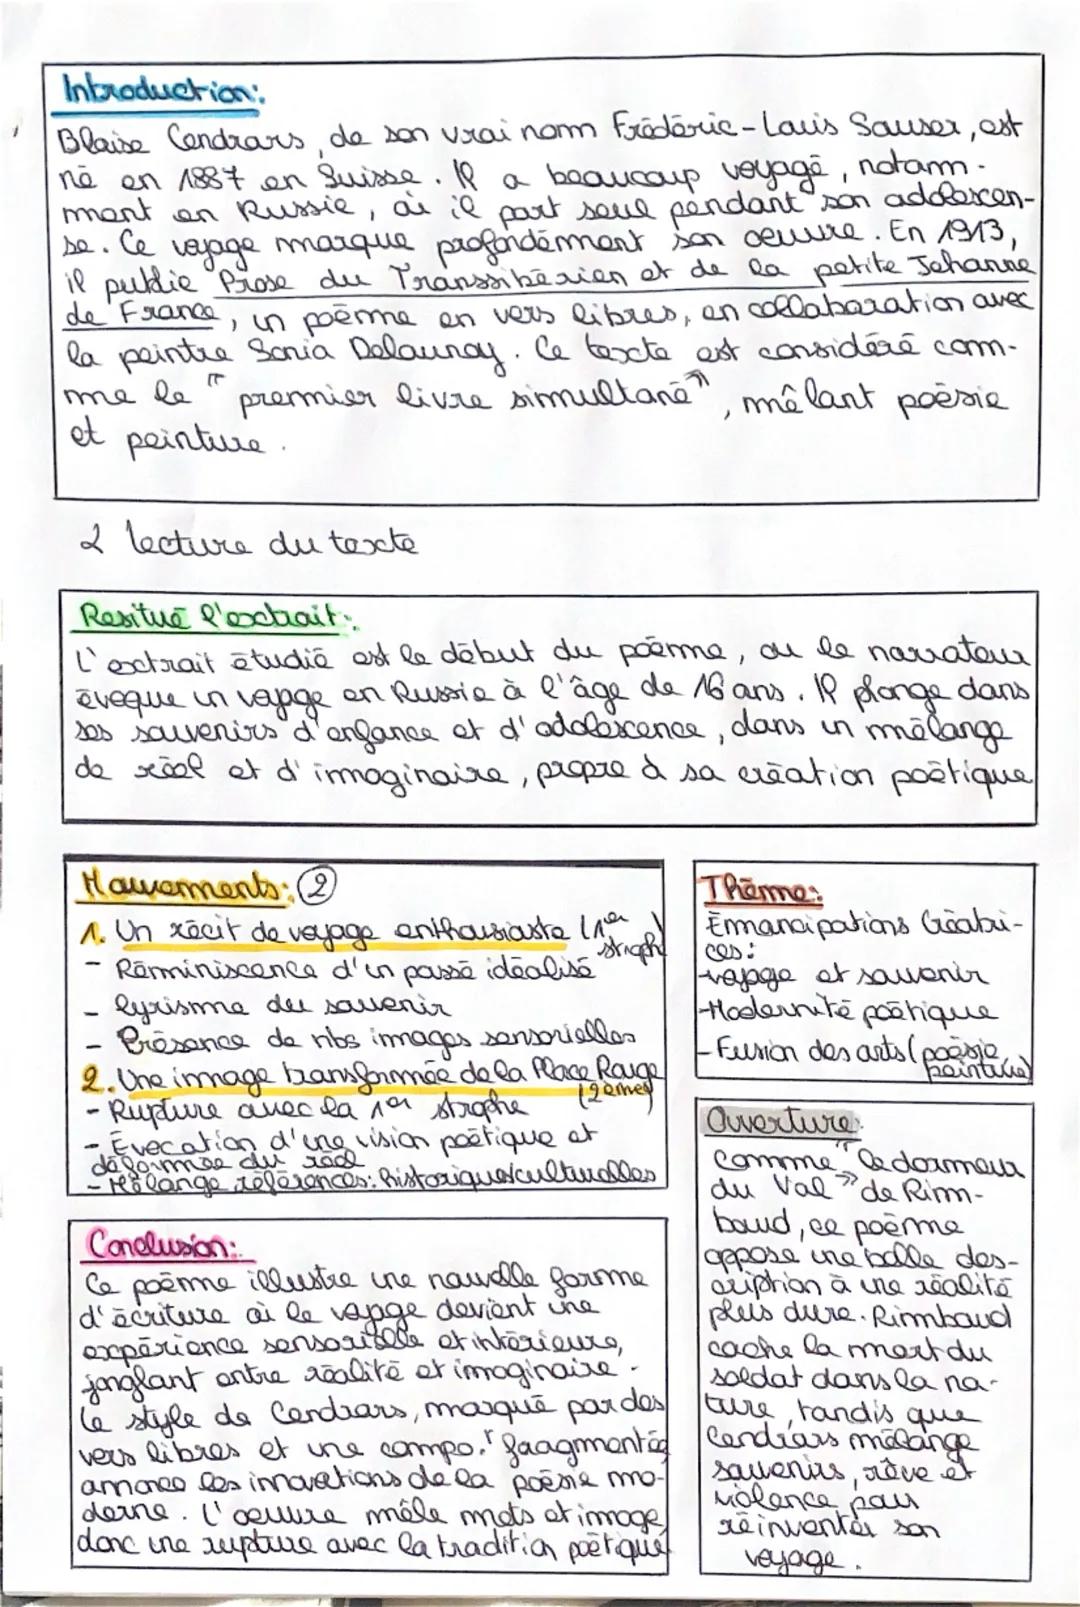 Introduction:
Blaise Cendrars, de son vrai nom Frédéric-Louis Sauser, est
né en 1887 en Suisse. Il a beaucoup voyagé, notam-
ment en Russie, où il part seul pendant son adolescen-
se. Ce voyage marque profondément son oeuvre. En 1913,
il publie Prose du Transsibérien et de la petite Jehanne
de France, un poème en vers libres, en collaboration avec
la peintre Sonia Delaunay. Ce texte est considéré com-
me le "premier livre simultané", mêlant poésie
et peinture.
2 lecture du texte
Resitué l'extrait:
L'extrait étudié est le début du poème, ou le narrateur
évoque un voyage en Russie à l'âge de 16 ans. Il plonge dans
ses souvenirs d'enfance et d'adolescence, dans un mélange
de réel et d'imaginaire, propre à sa création poétique
Mouvements: 2
1. Un récit de voyage enthousiaste (1er
stroph)
- Réminiscence d'un passé idéalisé
- lyrisme du souvenir
- Présence de nbs images sensorielles
2. Une image transformée de la Place Rouge
(2ème)
- Rupture avec la 1er strophe
- Évocation d'une vision poétique et
déformée du réel
- Mélange références: historiques/culturelles
Thème:
Émancipations Créatri-
ces:
-voyage et souvenir
-Modernité poétique
- Fusion des arts (poésie,
peinture)
Conclusion:
Ce poème illustre une nouvelle forme
d'écriture où le voyage devient une
expérience sensorielle et intérieure,
jonglant entre réalité et imaginaire.
Le style de Cendrars, marqué par des
vers libres et une compo.° fragmentée
annonce les innovations de la poésie mo-
derne. L'oeuvre mêle mots et image,
donc une rupture avec la tradition poétique
Ouverture:
Comme "le dormeur
du Val" de Rim-
baud, ce poème
oppose une belle des-
cription à une réalité
plus dure. Rimbaud
cache la mort du
soldat dans la na-
ture, tandis que
Cendrars mélange
souvenirs, rêve et
violence pour
réinventer son
voyage.